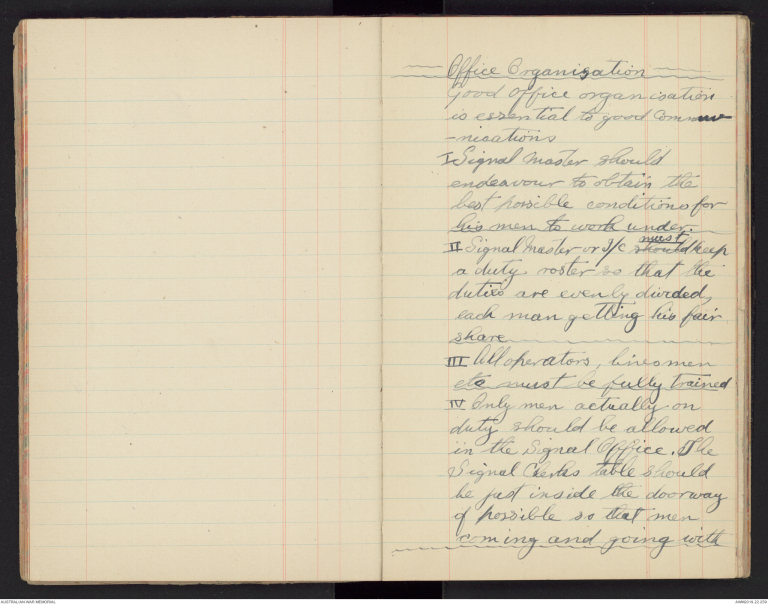 Office Organisation
Good Office organisation
is essential to good Commu
-nications
I Signal Master should
endeavour to obtain the
best possible conditions for
his men to work under.
II Signal Master or I/C should must keep
a duty roster so that the
duties are evenly divided,
each man getting his fair
share
III All operators, linesmen
etc must be fully trained
IV Only men actually on
duty should be allowed
in the Signal Office. The
Signal Clerks table should
be just inside the doorway
if possible so that men
coming and going with
AUSTRALIAN WAR MEMORIAL